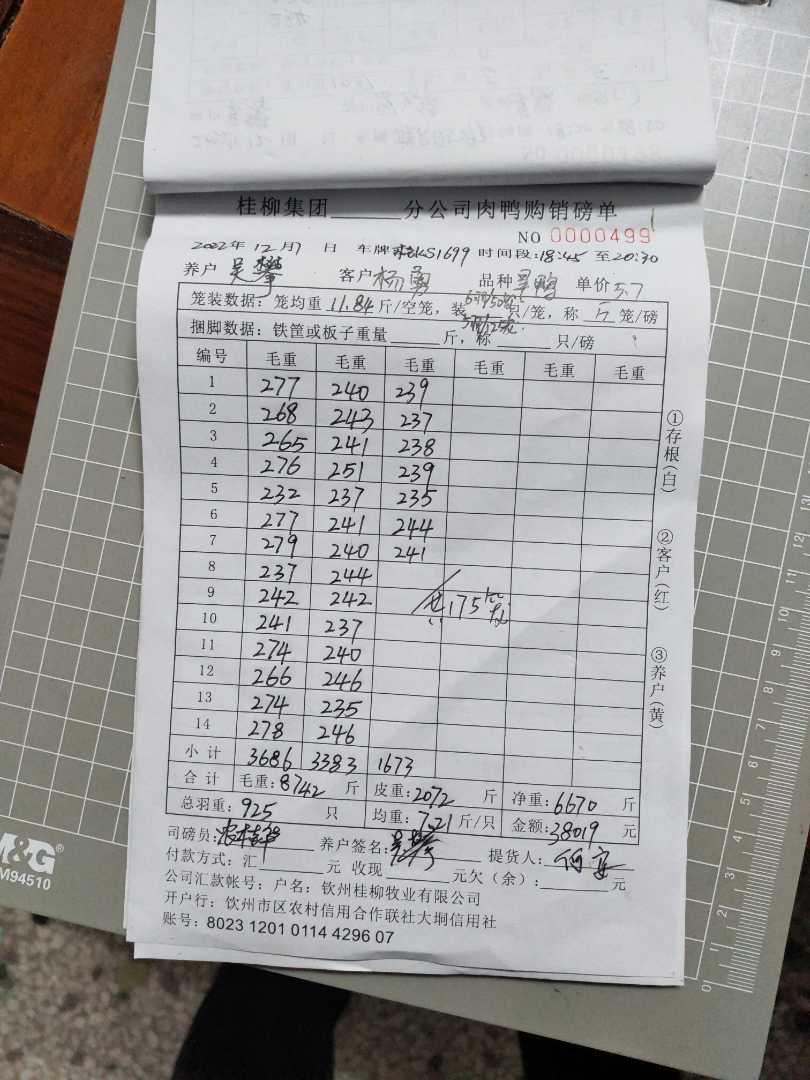 桂柳集团______分公司肉鸭购销磅单
NO 0000499
2022年12月7日 车牌 KS1699 时间段:18:45 至20:30
养户 吴攀 客户 杨勇 品种 旱鸭 单价 5.7
笼装数据：笼均重 11.84 斤/空笼，装 6只/50笼 5只/125笼 只/笼，称 5 笼/磅
捆脚数据：铁筐或板子重量______斤，称______只/磅
编号 毛重 毛重 毛重 毛重 毛重 毛重
1 277 240 239
2 268 243 237
3 265 241 238
4 276 251 239
5 232 237 235
6 277 241 244
7 279 240 241
8 237 244
9 242 242 共175笼
10 241 237
11 274 240
12 266 246
13 274 235
14 278 246
小计 3686 3383 1673
合计 毛重:8742 斤 皮重:2072 斤 净重:6670 斤
总羽重:925 只 均重:7.21 斤/只 金额:38019 元
司磅员: 养户签名:吴攀 提货人:
付款方式：汇______元 收现______元欠（余）:______元
公司汇款帐号：户名：钦州桂柳牧业有限公司
开户行：钦州市区农村信用合作联社大垌信用社
账号：8023 1201 0114 4296 07
①存根(白)
②客户(红)
③养户(黄)
M&G
M94510
0 1 2 3 4 5 6 7 8 9 10 11 12